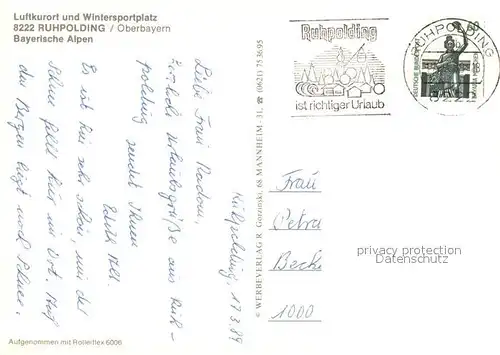 Luftkurort und Wintersportplatz
8222 RUHPOLDING / Oberbayern
Bayerische Alpen
Ruhpolding
ist richtiger Urlaub
RUHPOLDING
8222
DEUTSCHE BUNDESPOST
60
Ruhpolding, 17.3.89
Liebe Frau Radom,
herzliche Urlaubsgrüße aus Ruh-
polding sendet Ihnen
Edith
Es ist hier sehr schön, nur der
Schnee fehlt hier im Ort. Auf
den Bergen liegt noch Schnee.
© WERBEVERLAG R. Gorzinski, 68 MANNHEIM - 31, ☎ (0621) 75 36 95
Frau
Petra
Becke
1000
privacy protection
Datenschutz
Aufgenommen mit Rolleiflex 6006